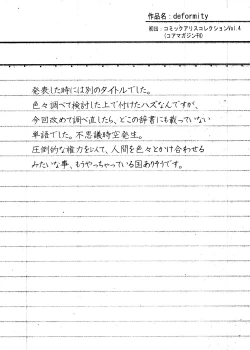 作品名：deformity
初出：コミックアリスコレクションVol.4
（コアマガジン刊）
発表した時には別のタイトルでした。
色々調べて検討した上で付けたハズなんですが、
今回改めて調べ直したら、どこの辞書にも載っていない
単語でした。不思議時空発生。
圧倒的な権力をして、人間を色々とかけ合わせる
みたいな事、もうやっちゃっている国ありそうです。